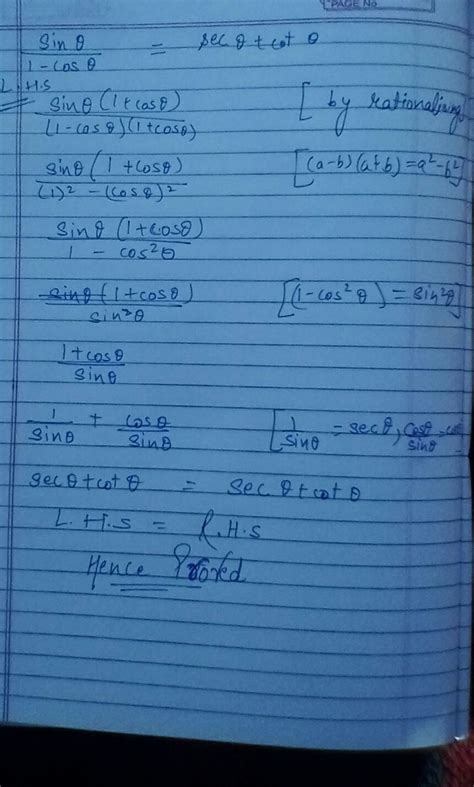 PAGE No.
sinθ / 1 - cosθ = sec θ + cot θ
L.H.S
sinθ (1+cosθ) / (1-cosθ)(1+cosθ) [by rationalising
sinθ (1+cosθ) / (1)² - (cosθ)² [(a-b)(a+b) = a²-b²]
sinθ (1+cosθ) / 1 - cos²θ
sinθ (1+cosθ) / sin²θ [(1-cos²θ) = sin²θ]
1+cosθ / sinθ
1/sinθ + cosθ/sinθ [1/sinθ = secθ, cosθ/sinθ =
secθ + cot θ = sec θ + cot θ
L.H.S = R.H.S
Hence Proved